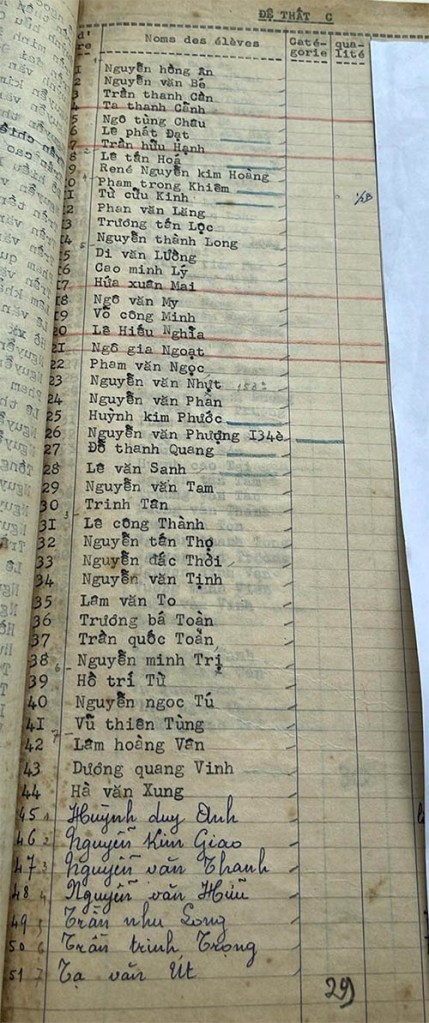 ĐỆ THẤT C
Noms des élèves Caté- qua-
gorie lité
I Nguyễn hồng Ân
2 Nguyễn văn Bé
3 Trần thanh Cần
4 Tạ thanh Cảnh
5 Ngô tùng Châu
6 Lê phát Đạt
7 Trần hữu Hạnh
8 Lê tấn Hoá
9 René Nguyễn kim Hoàng
I0 Phạm trong Khiêm
II Từ cửu Kinh
I2 Phan văn Lăng
I3 Trương tấn Lọc
I4 Nguyễn thành Long
I5 Di văn Lương
I6 Cao minh Lý
I7 Hứa xuân Mai
I8 Ngô văn My
I9 Võ công Minh
20 Lê Hiếu Nghĩa
2I Ngô gia Ngoạt
22 Phạm văn Ngọc
23 Nguyễn văn Nhựt
24 Nguyễn văn Phàn
25 Huỳnh kim Phước
26 Nguyễn văn Phượng I34è
27 Đỗ thanh Quang
28 Lê văn Sanh
29 Nguyễn văn Tam
30 Trinh Tân
3I Lê công Thành
32 Nguyễn tấn Thọ
33 Nguyễn đắc Thời
34 Nguyễn văn Tịnh
35 Lâm văn To
36 Trương bá Toàn
37 Trần quốc Toản
38 Nguyễn minh Trị
39 Hồ trí Từ
40 Nguyễn ngoc Tú
4I Vũ thiên Tùng
42 Lâm hoàng Vân
43 Dương quang Vinh
44 Hà văn Xung
45 1 Huỳnh duy Anh
46 2 Nguyễn Kim Giao
47 3 Nguyễn văn Thanh
48 4 Nguyễn văn Hữu
49 5 Trần như Long
50 6 Trần trinh Trọng
51 7 Tạ văn Út
29